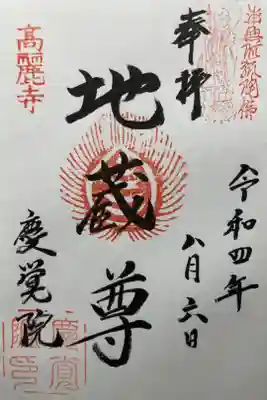 奉拝
令和四年
八月六日
地蔵尊
高麗寺
慶覚院